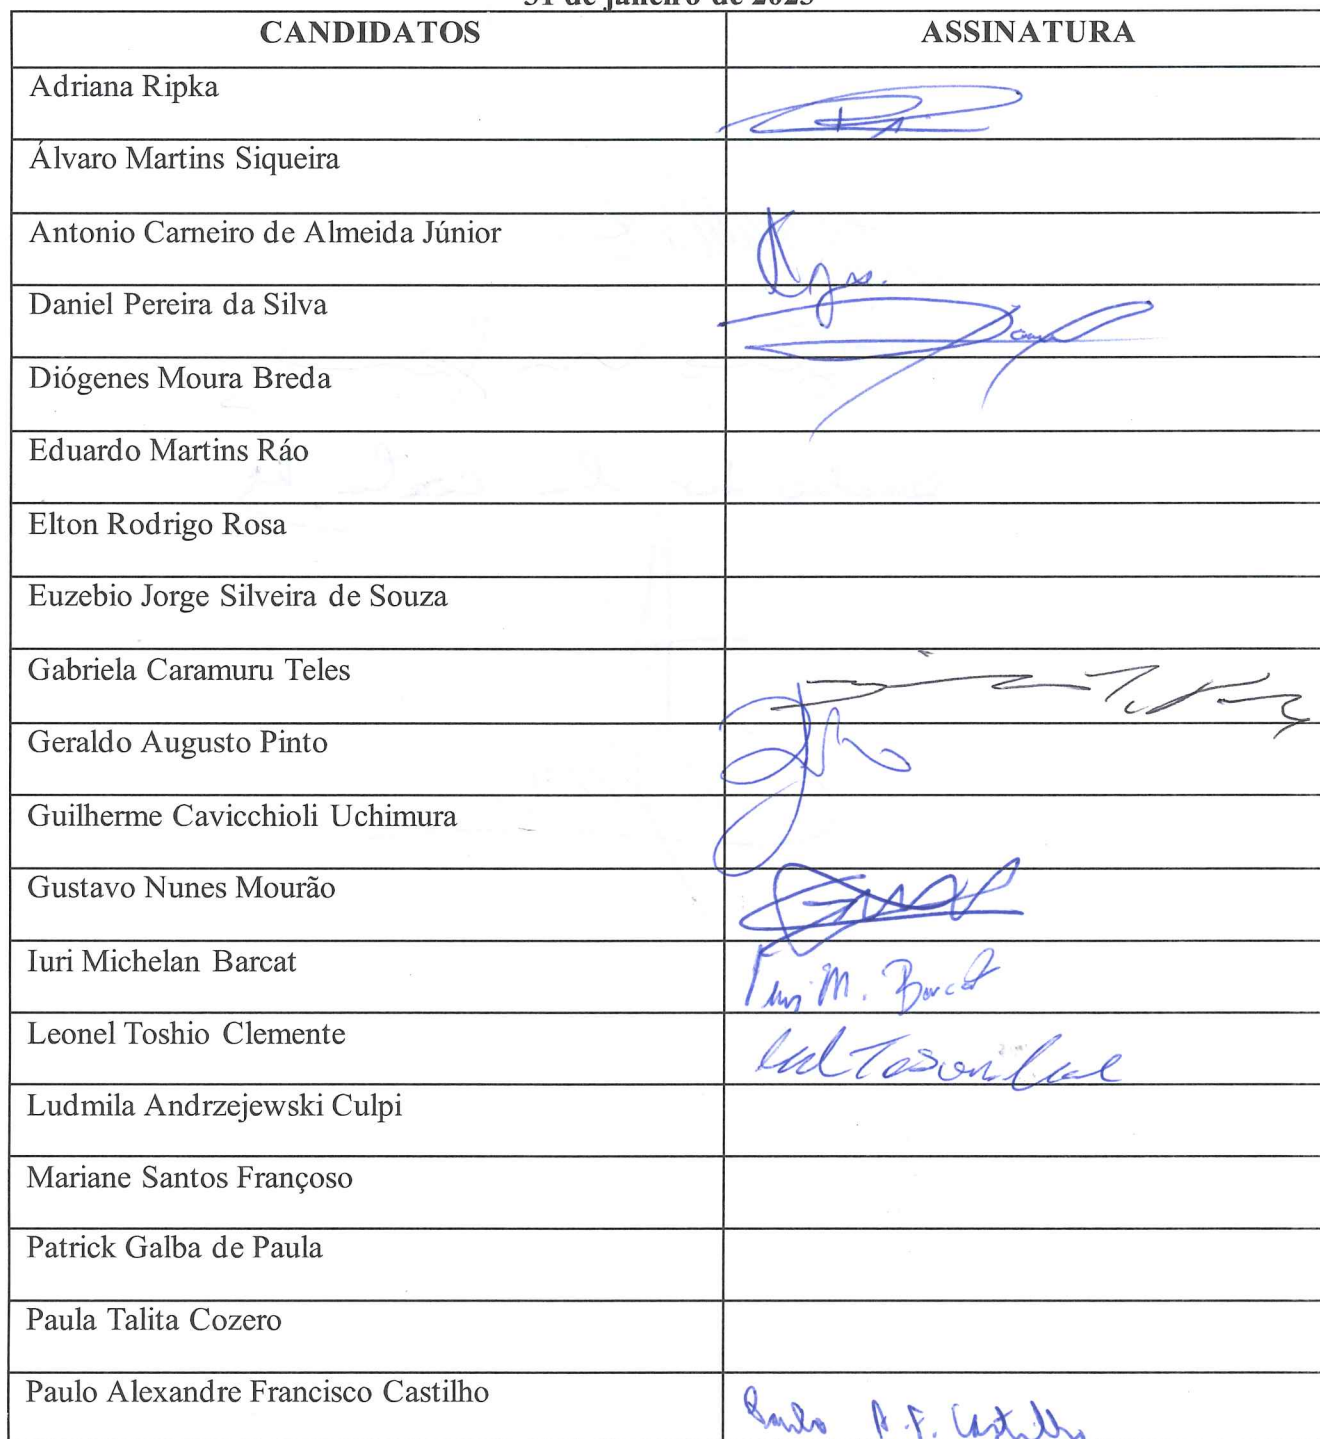 31 de janeiro de 2023
CANDIDATOS ASSINATURA
Adriana Ripka
Álvaro Martins Siqueira
Antonio Carneiro de Almeida Júnior
Daniel Pereira da Silva
Diógenes Moura Breda
Eduardo Martins Ráo
Elton Rodrigo Rosa
Euzebio Jorge Silveira de Souza
Gabriela Caramuru Teles
Geraldo Augusto Pinto
Guilherme Cavicchioli Uchimura
Gustavo Nunes Mourão
Iuri Michelan Barcat Iuri M. Barcat
Leonel Toshio Clemente
Ludmila Andrzejewski Culpi
Mariane Santos Françoso
Patrick Galba de Paula
Paula Talita Cozero
Paulo Alexandre Francisco Castilho Paulo A. F. Castilho